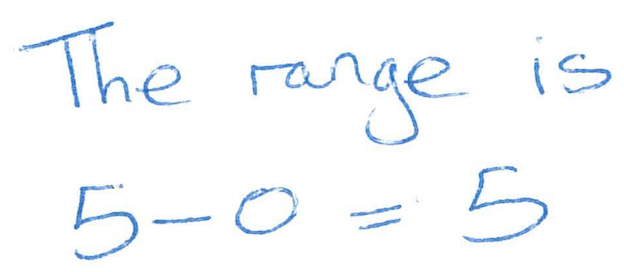 The range is
5 - 0 = 5